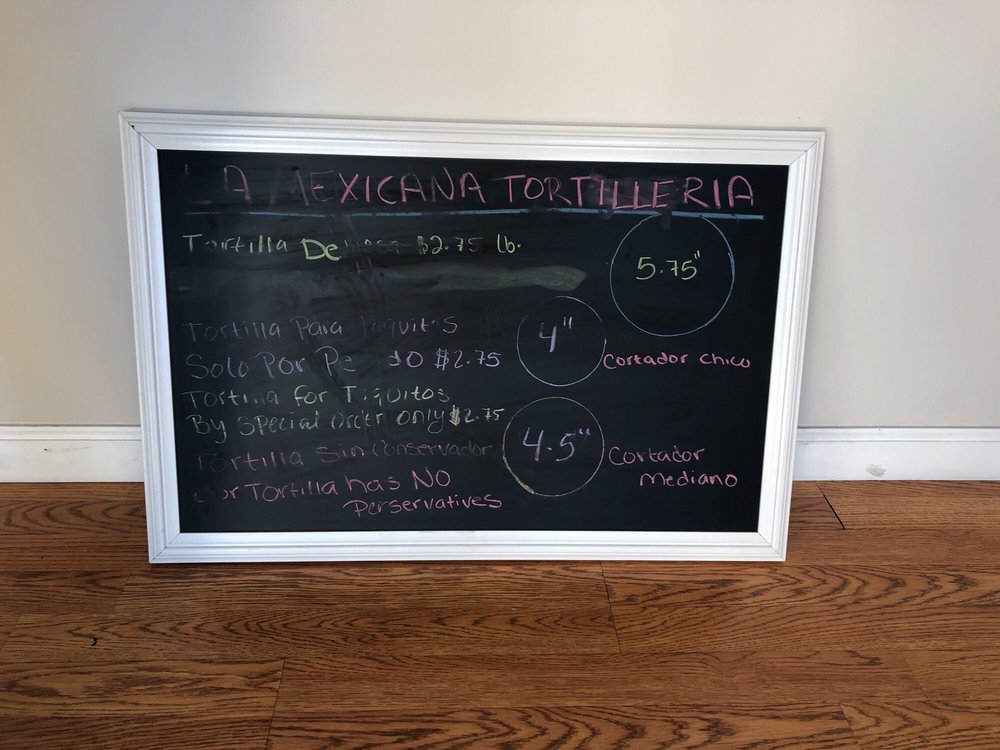 LA MEXICANA TORTILLERIA
Tortilla De $2.75 lb.
5.75"
Tortilla Para Taquitos
4"
Solo Por $2.75
Cortador chico
Tortilla for Taquitos
By Special Order only $2.75
Tortilla Sin Conservador
4.5"
Cortador
Mediano
Our Tortilla has NO
Perservatives